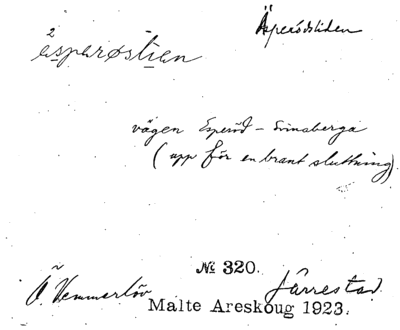 Äsperödsliden
2
ä̀sparøstian
vägen Esperöd - Svinaberga
(upp för en brant sluttning)
№ 320.
Ö. Vemmerlöv Järrestad.
Malte Areskoug 1923.